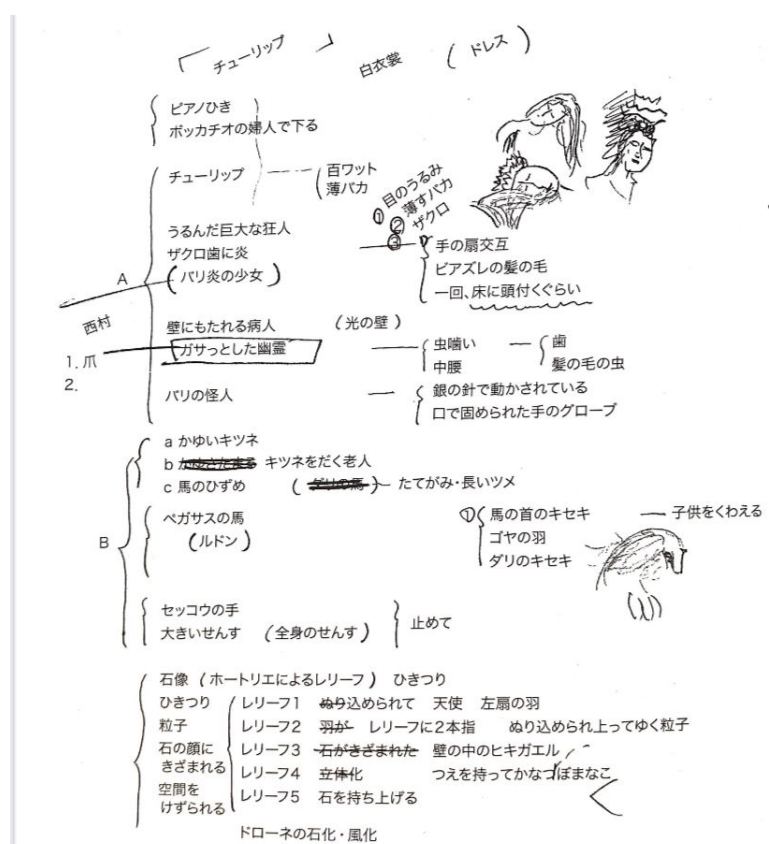 「チューリップ」 白衣裳 (ドレス)
ピアノひき
ボッカチオの婦人で下る
チューリップ 百ワット
薄バカ
①目のうるみ
②薄すバカ
③ザクロ
うるんだ巨大な狂人
ザクロ歯に炎 手の扇交互
A (バリ炎の少女) ビアズレの髪の毛
一回、床に頭付くぐらい
西村
壁にもたれる病人 (光の壁)
1. 爪 ガサっとした幽霊 虫噛い 歯
中腰 髪の毛の虫
2.
バリの怪人 銀の針で動かされている
口で固められた手のグローブ
a かゆいキツネ
b かゆさたまる キツネをだく老人
c 馬のひずめ (ダリの馬) たてがみ・長いツメ
B ペガサスの馬 ① 馬の首のキセキ 子供をくわえる
(ルドン) ゴヤの羽
ダリのキセキ
セッコウの手
大きいせんす (全身のせんす) 止めて
石像 (ホートリエによるレリーフ) ひきつり
ひきつり レリーフ1 ぬり込められて 天使 左扇の羽
粒子 レリーフ2 羽が レリーフに2本指 ぬり込められ上ってゆく粒子
石の顔に レリーフ3 石がきざまれた 壁の中のヒキガエル
きざまれる レリーフ4 立体化 つえを持ってかなつぼまなこ
空間を レリーフ5 石を持ち上げる
けずられる
ドローネの石化・風化